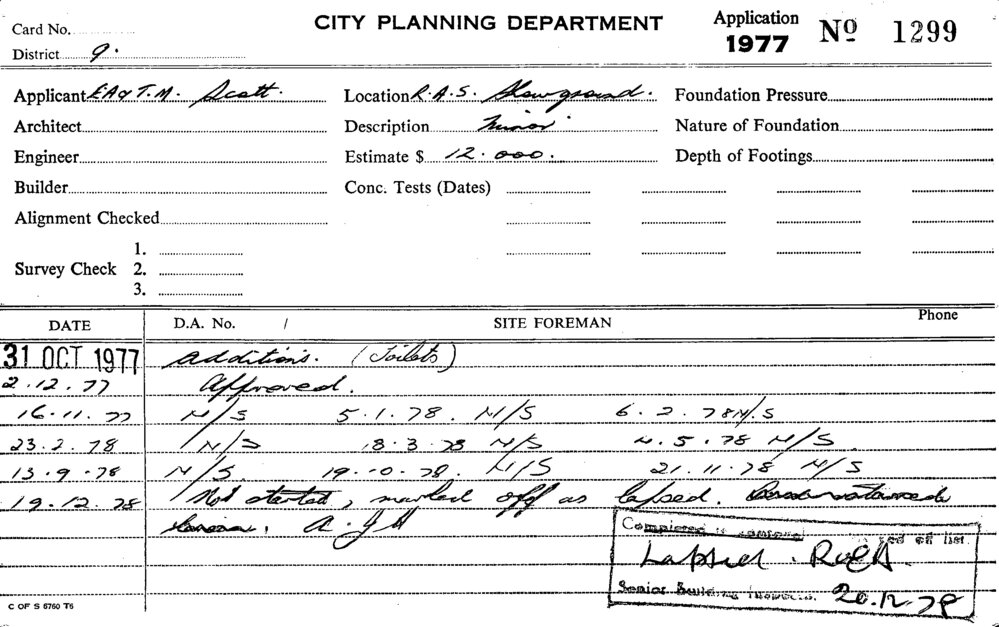 CITY PLANNING DEPARTMENT
Application 1977 Nº 1299
Card No.
District 9.
Applicant E A & T. M. Scott. Location R.A.S. Showground. Foundation Pressure
Architect Description Minor Nature of Foundation
Engineer Estimate $ 12.000. Depth of Footings
Builder Conc. Tests (Dates)
Alignment Checked
1.
Survey Check 2.
3.
DATE D.A. No. / SITE FOREMAN Phone
31 OCT 1977 Additions. (Toilets)
2.12.77 Approved.
16.11.77 N/S 5.1.78. N/S 6.2.78 N/S
23.2.78 N/S 18.3.78 N/S 4.5.78 N/S
13.9.78 N/S 19.10.78. N/S 21.11.78 N/S
19.12.78 Not started, marked off as lapsed.
Completed off list.
Lapsed.
Senior Building Inspector. 20.12.78
C OF S 6760 T6